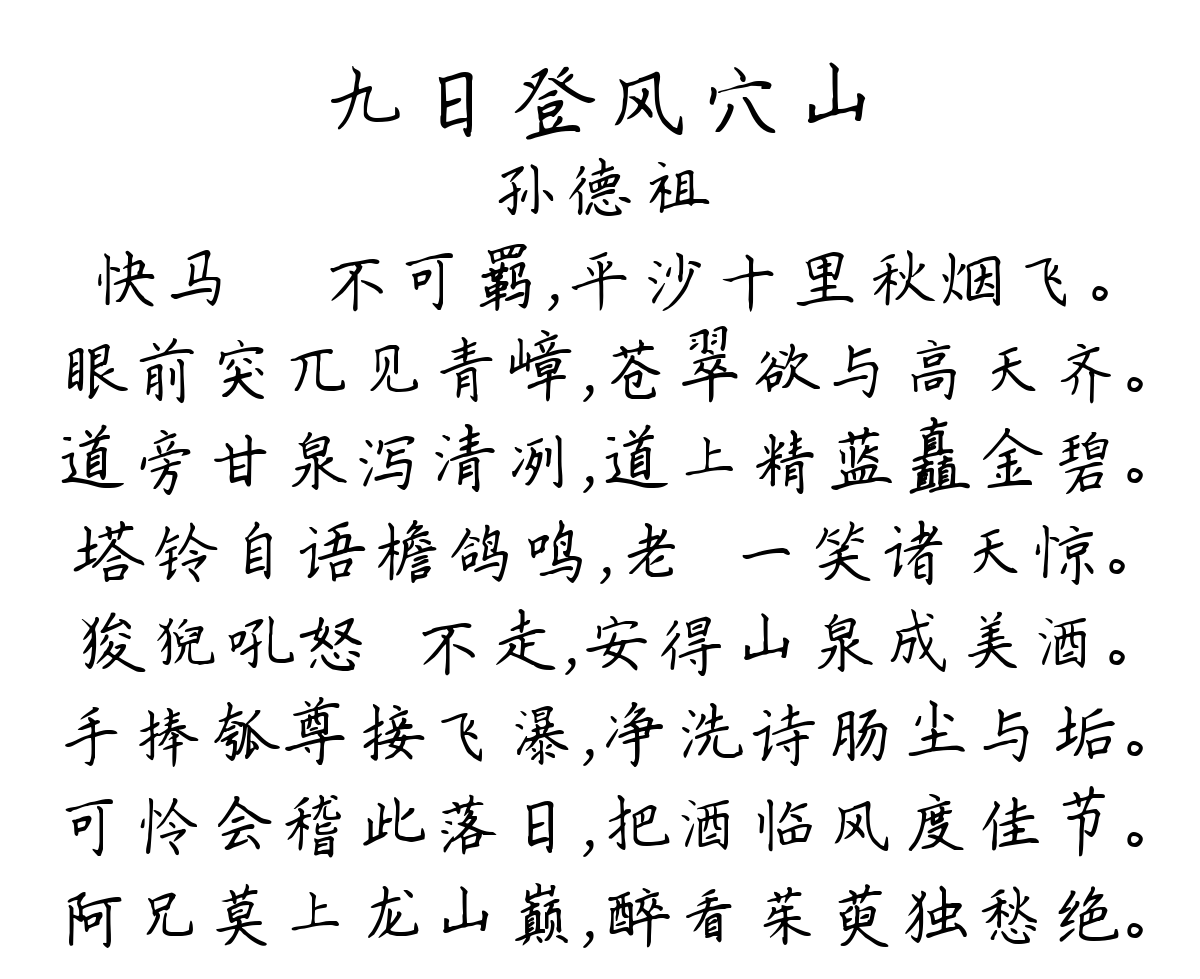 九日登风穴山
孙德祖
快马 不可羁,平沙十里秋烟飞。
眼前突兀见青嶂,苍翠欲与高天齐。
道旁甘泉泻清冽,道上精蓝矗金碧。
塔铃自语檐鸽鸣,老 一笑诸天惊。
狻猊吼怒 不走,安得山泉成美酒。
手捧瓠尊接飞瀑,净洗诗肠尘与垢。
可怜会稽此落日,把酒临风度佳节。
阿兄莫上龙山巅,醉看茱萸独愁绝。